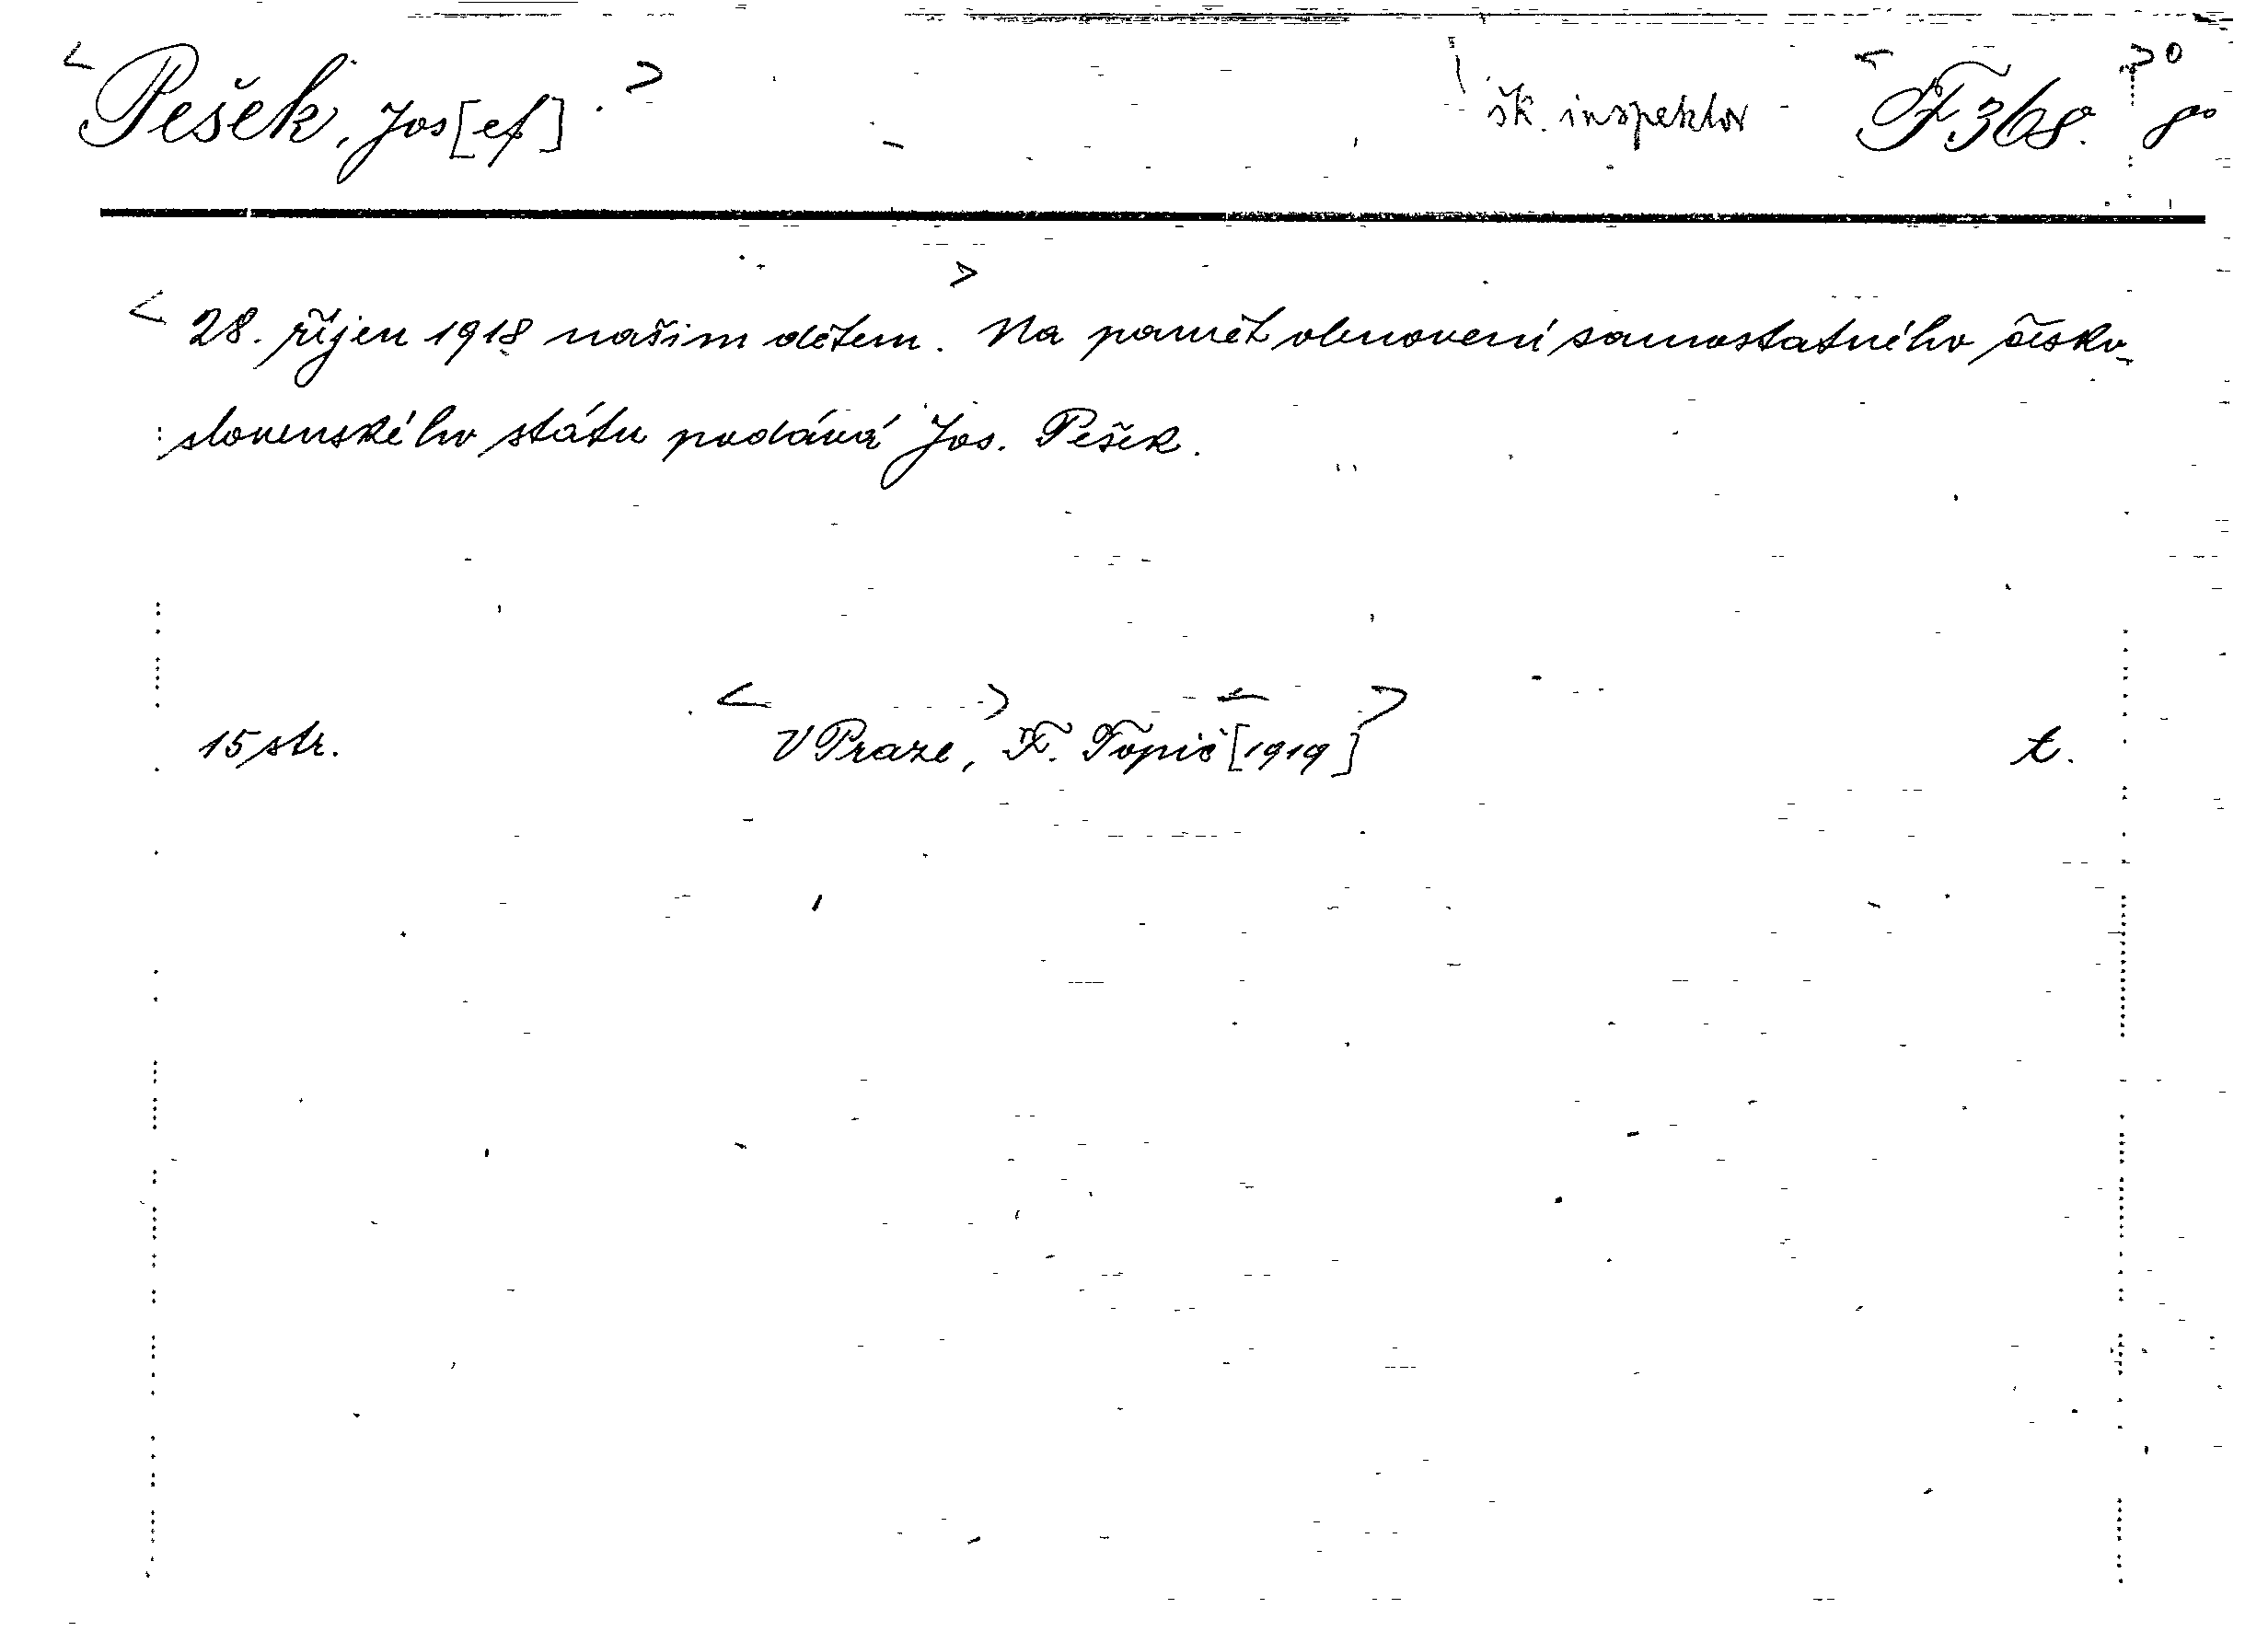 Pešek, Jos[ef]. šk. inspektor F 368. 8°
28. říjen 1918 našim dětem. Na paměť obnovení samostatného česko-
slovenského státu podává Jos. Pešek.
15 str. V Praze, F. Topič [1919] t.